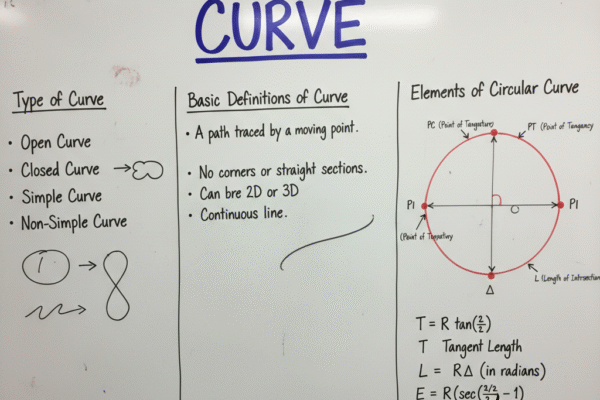 CURVE
Type of Curve
• Open Curve
• Closed Curve
• Simple Curve
• Non-Simple Curve
Basic Definitions of Curve
• A path traced by a moving point.
• No corners or straight sections.
• Can bre 2D or 3D
• Continuous line.
Elements of Circular Curve
PC (Point of
PT (Point of Tangancy
PI
O
PI
(Point of
L (Length of
Δ
T = R tan(2/2)
T Tangent Length
L = RΔ (in radians)
E = R(sec(2/2 - 1)